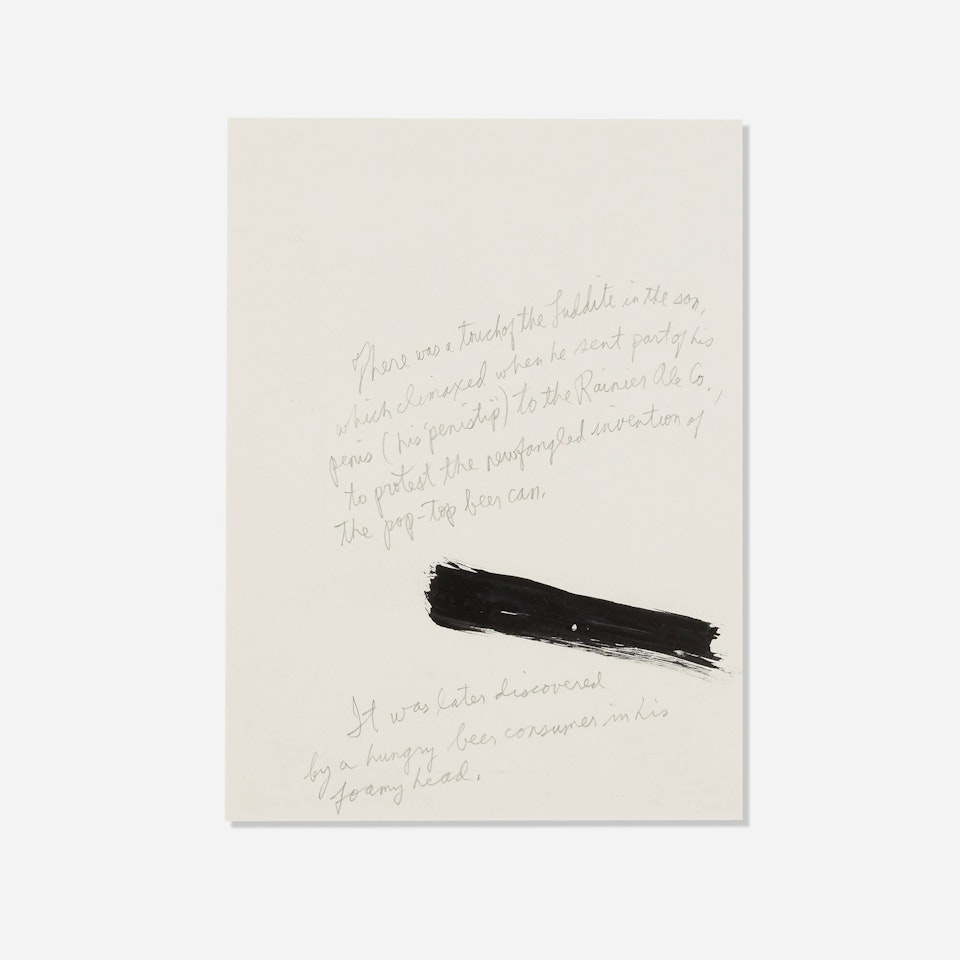 There was a touch of the Luddite in the son,
which climaxed when he sent part of his
penis (his "penistip") to the Rainier Ale Co.,
to protest the newfangled invention of
the pop-top beer can.
It was later discovered
by a hungry beer consumer in his
foamy head.